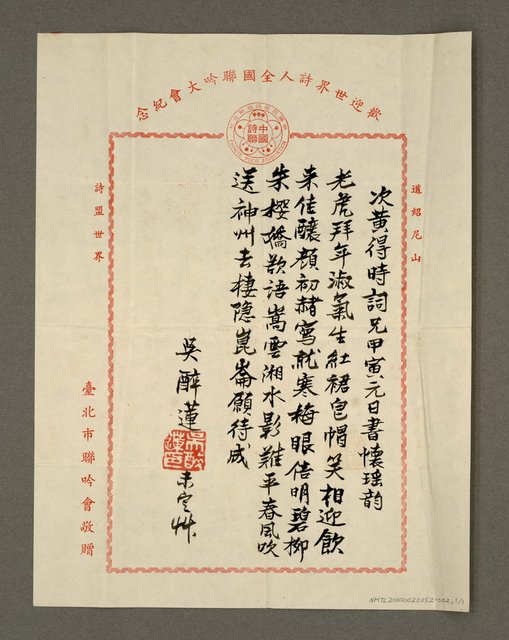 歡迎世界詩人全國聯吟大會紀念
中國詩聯
道紹尼山
次黃得時詞兄甲寅元日書懷瑤韵
老虎拜年淑氣生紅裙皂帽笑相迎飲
来佳釀顏初赭寫就寒梅眼倍明碧柳
朱櫻矯欲語嵩雲湘水影難平春風吹
送神州去棲隱崑崙願待成
吳醉蓮
未定艸
詩盟世界
臺北市聯吟會敬贈
NMTL20100020252-002,1/1